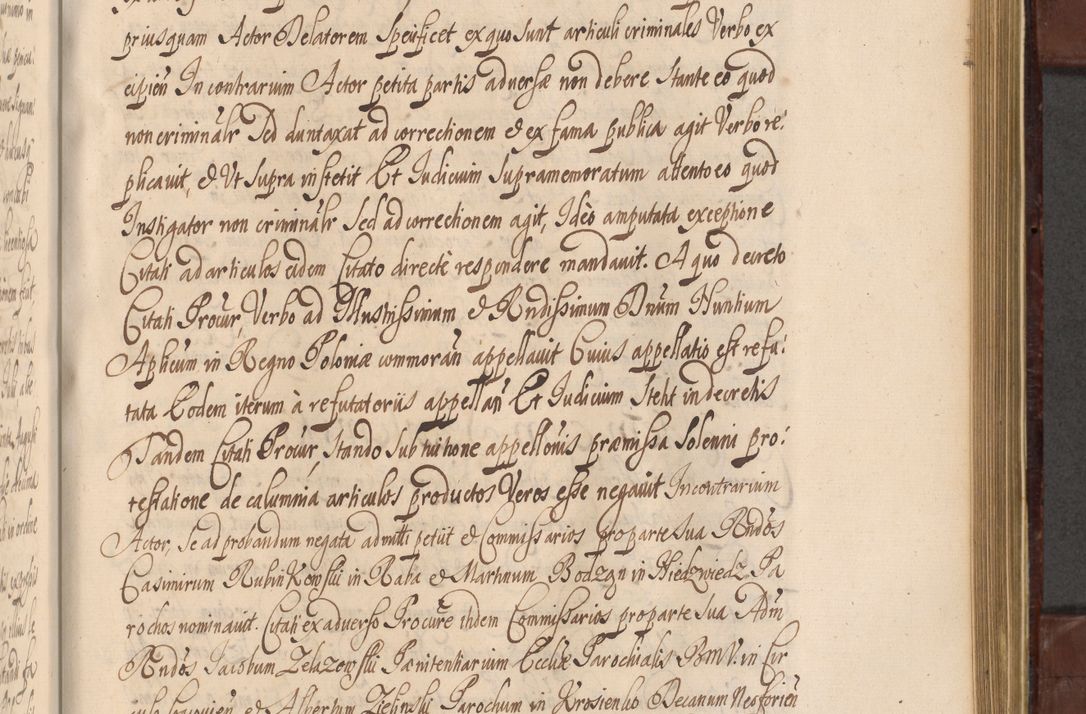 priusquam Actor Delatorem speificet ex quo sunt articuli criminales Verbo ex
cipien In contrarium Actor petita partis adversæ non debere stante eo quod
non criminalr Sed duntaxat ad correctionem & ex fama publica agit Verbo re:
plicavit, & Ut supra institit Et Judicium supramemoratum attento eo quod
Instigator non criminalr sed ad correctionem agit, Ideò amputata exceptione
Citati ad articulos eidem Citato directè respondere mandavit. A quo decreto
Citati Procur, Verbo ad Illustrissimum & Rndissimum Dnum Nuntium
Aplicum in Regno Poloniæ commoran appellavit Cuius appellatio est refu:
tata Eodem iterum à refutatoriis appellan Et Judicium stetit in decretis
Tandem Citati Procur, stando sub tuitione appellonis præmissa solenni pro:
testatione de calumnia articulos productos Veros esse negavit In contrarium
Actor, se ad probandum negata admitti petiit & Commissarios pro parte sua Rndos
Casimirum Rubinkowski in Raba & Martinum Bodzgn in Niedzwiedz Pa
rochos nominavit. Citati ex adverso Procure itidem Commissarios pro parte sua Adm
Rndos Jacobum Zelazowski Pænitentiarium Ecclæ Parochialis BMV. in Cir
culo Cracovien & Albertum Zielinski Parochum in Krosienko Decanum Neoforien